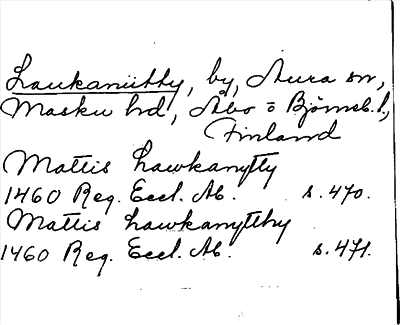 Laukanuitty, by, Aura sn,
Masku hd, Åbo = Björneb. l.,
Finland
Mattis Lawkanytty
1460 Reg. Eccl. Ab. s. 470.
Mattis Lawkanyttby
1460 Reg. Eccl. Ab. s. 471.